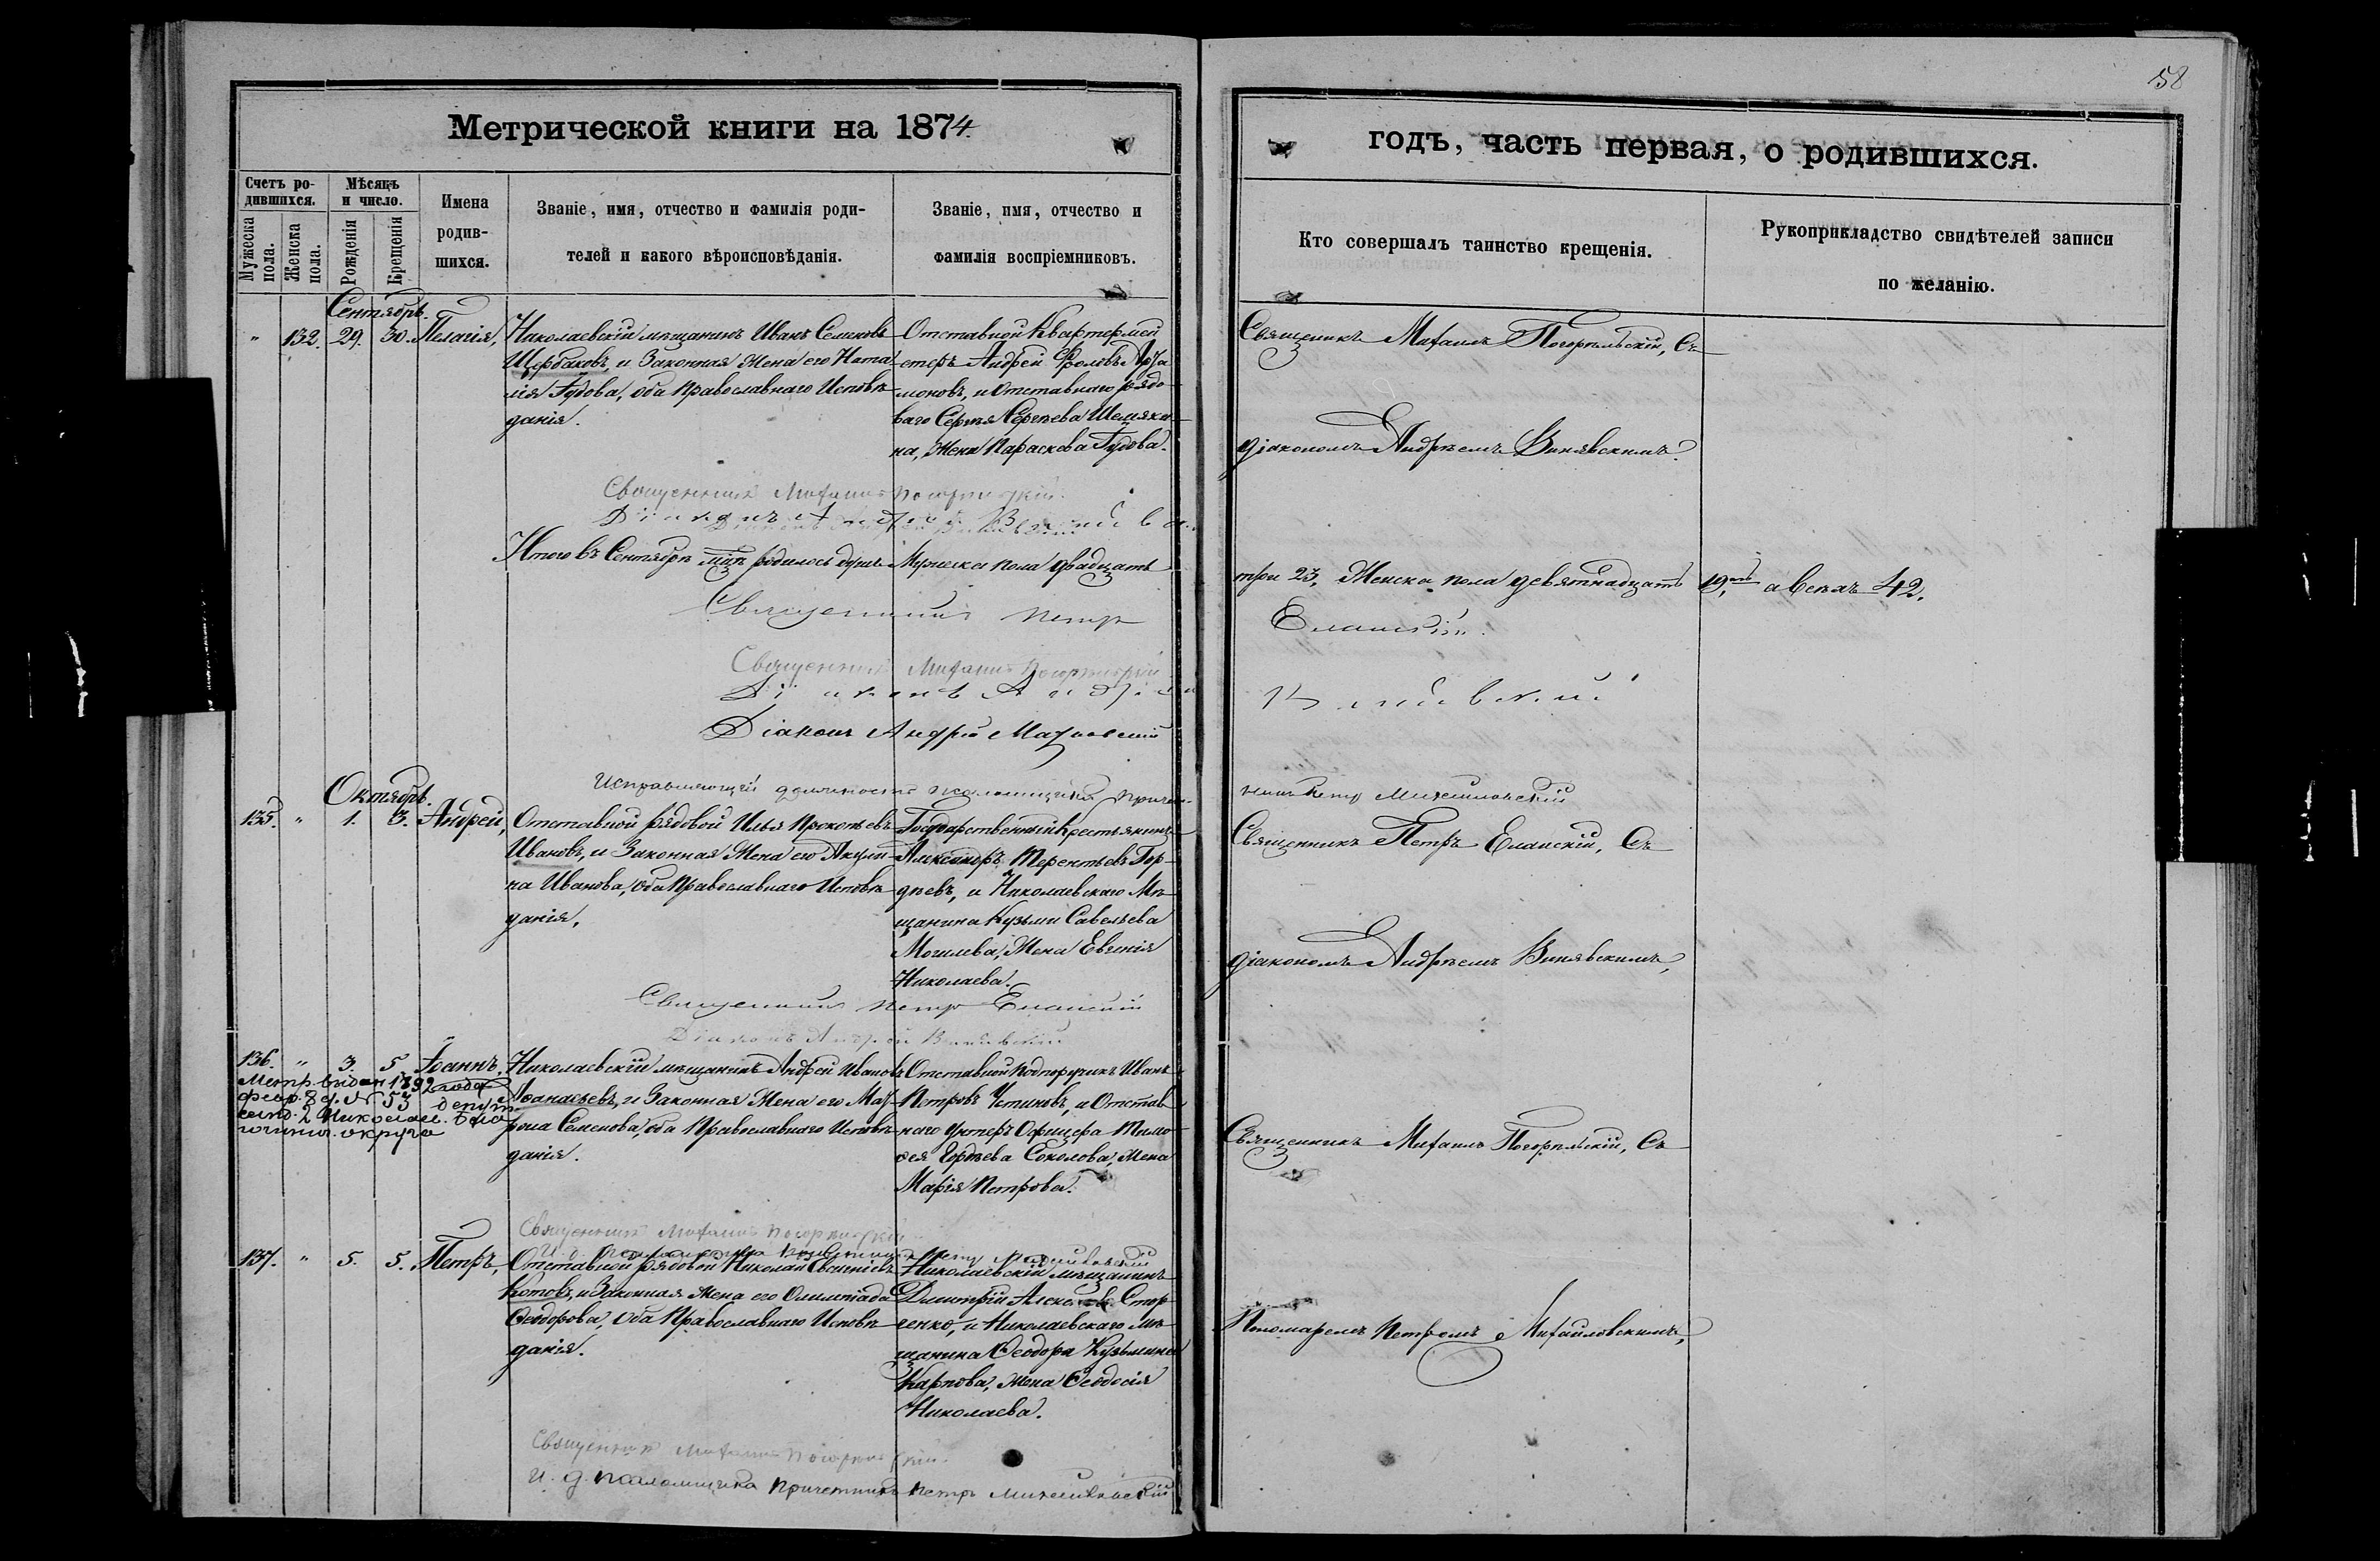 58
Метрической книги на 1874.
годъ, часть первая, о родившихся.
Счетъ ро-
дившихся.
Мужеска
пола.
Женска
пола.
Мѣсяцъ
и число.
Рожденія
Крещенія
Имена
родив-
шихся.
Званіе, имя, отчество и фамилія роди-
телей и какого вѣроисповѣданія.
Званіе, имя, отчество и
фамилія воспріемниковъ.
Кто совершалъ таинство крещенія.
Рукоприкладство свидѣтелей записи
по желанію.
Сентябрь.
" 132. 29. 30. Пелагія,
Николаевскій мѣщанинъ Иванъ Семеновъ
Щербаковъ, и Законная Жена его Ната
лія Гудова, оба Православнаго Исповѣ
данія.
Отставной Квартермей
стеръ Андрей Фроловъ Арта
моновъ, и Отставнаго рядо
ваго Сергѣя Сергѣева Шемяки
на, Жена Параскева Гудова.
Священникъ Михаилъ Погорѣльскій, Съ
діакономъ Андреемъ Винявскимъ.
Священникъ Михаилъ Погорѣльскій
Діаконъ Андрей
Итого въ Сентябрѣ мцѣ родилось душъ Мужеска пола двадцать
три 23, Женска пола девятнадцать 19, а всехъ 42.
Священникъ Петръ
Еланскій.
Священникъ Михаилъ Погорѣльскій
Діаконъ Андрей
Винявскій
Діаконъ Андрей
Исправляющій должность псаломщика
Петръ Михайловскій
Октябрь.
135. " 1. 3. Андрей,
Отставной рядовой Илья Прокопьевъ
Ивановъ, и Законная Жена его Акули
на Иванова, оба Православнаго Исповѣ
данія,
Государственный крестьянинъ
Александръ Терентьевъ Гор-
дѣевъ, и Николаевскаго Мѣ
щанина Кузьмы Савельева
Могилева, Жена Евгенія
Николаева.
Священникъ Петръ Еланскій, Съ
діакономъ Андреемъ Винявскимъ,
Священникъ Петръ Еланскій
Діаконъ Андрей Винявскій
136. " 3. 5. Іоаннъ,
Метр. выдан 1892 года
февр. 8 д. № 53
Николаевскій мѣщанинъ Андрей Ивановъ
Аѳанасьевъ, и Законная Жена его Мат
рона Семенова, оба Православнаго Исповѣ
данія.
Отставной Подпоручикъ Иванъ
Петровъ Устиновъ, и Отстав
наго Унтеръ Офицера Тимо
ѳея Гордѣева Соколова, Жена
Марія Петрова.
Священникъ Михаилъ Погорѣльскій, Съ
Священникъ Михаилъ Погорѣльскій
137. " 5. 5. Петръ,
Отставной рядовой Николай Евсигніевъ
Котовъ, и Законная Жена его Олимпіада
Ѳеодорова, оба Православнаго Исповѣ
данія.
Николаевскій мѣщанинъ
Димитрій
и Николаевскаго мѣ
щанина Ѳеодора Кузьмина
Карпова, Жена Ѳеодосія
Николаева.
Пономаремъ Петромъ Михайловскимъ,
Священникъ Михаилъ Погорѣльскій
И. д. псаломщика Причетникъ Петръ Михайловскій